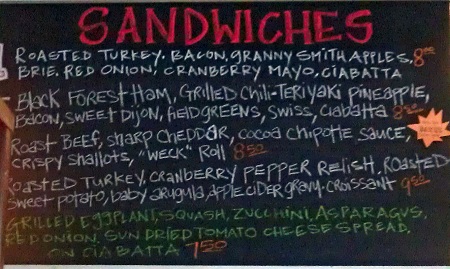 SANDWICHES
ROASTED TURKEY, BACON, GRANNY SMITH APPLES, 8.00
BRIE, RED ONION, CRANBERRY MAYO, CIABATTA
Black Forest Ham, Grilled Chili-Teriyaki pineapple,
Bacon, sweet Dijon, field greens, Swiss, ciabatta 8.50
Roast Beef, sharp cheddar, cocoa chipotle sauce,
crispy shallots, "weck" Roll 8.50
Roasted Turkey, cranberry pepper relish, Roasted
sweet potato, baby arugula, apple cider gravy-croissant 9.50
GRILLED EGGPLANT, SQUASH, ZUCCHINI, ASPARAGUS,
RED ONION, SUN DRIED TOMATO CHEESE SPREAD,
ON CIABATTA 7.50